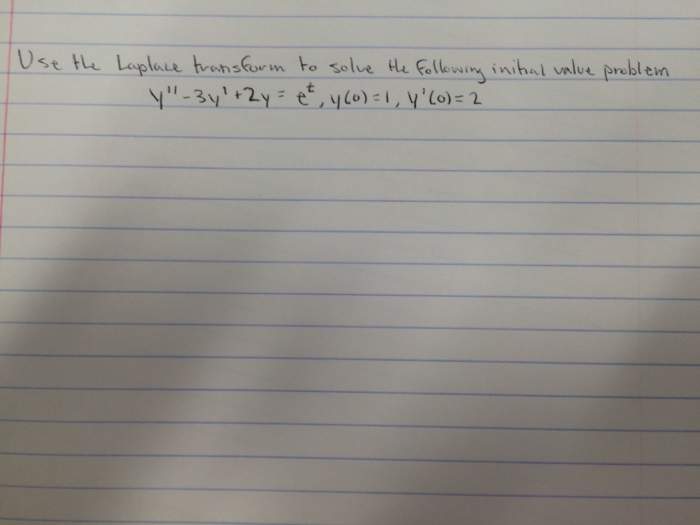 Use the Laplace transform to solve the following initial value problem
y'' - 3y' + 2y = e^t, y(0) = 1, y'(0) = 2